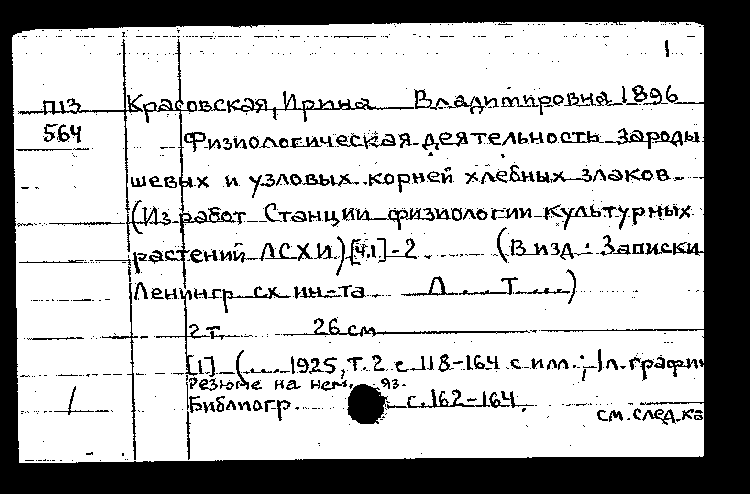 1
П13 Красовская, Ирина Владимировна 1896
564 Физиологическая деятельность зароды
шевых и узловых корней хлебных злаков.
(Из работ Станции физиологии культурных
растений ЛСХИ) [ч.1]-2. (В изд: Записки
Ленингр сх ин-та Л... Т....)
2 т. 26 см
[1] (.... 1925, т. 2 с 118-164 с илл.; 1л. графи
Резюме на нем. яз.
/ Библиогр. с. 162-164.
см. след. ка